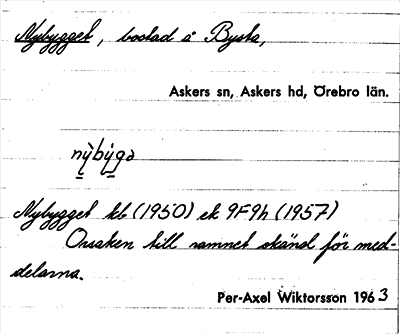 Nybygget, bostad å Bysta,
Askers sn, Askers hd, Örebro län.
nỳbỳgə
Nybygget kb (1950) ek 9F9h (1957)
Orsaken till namnet okänd för med-
delarna.
Per-Axel Wiktorsson 1963